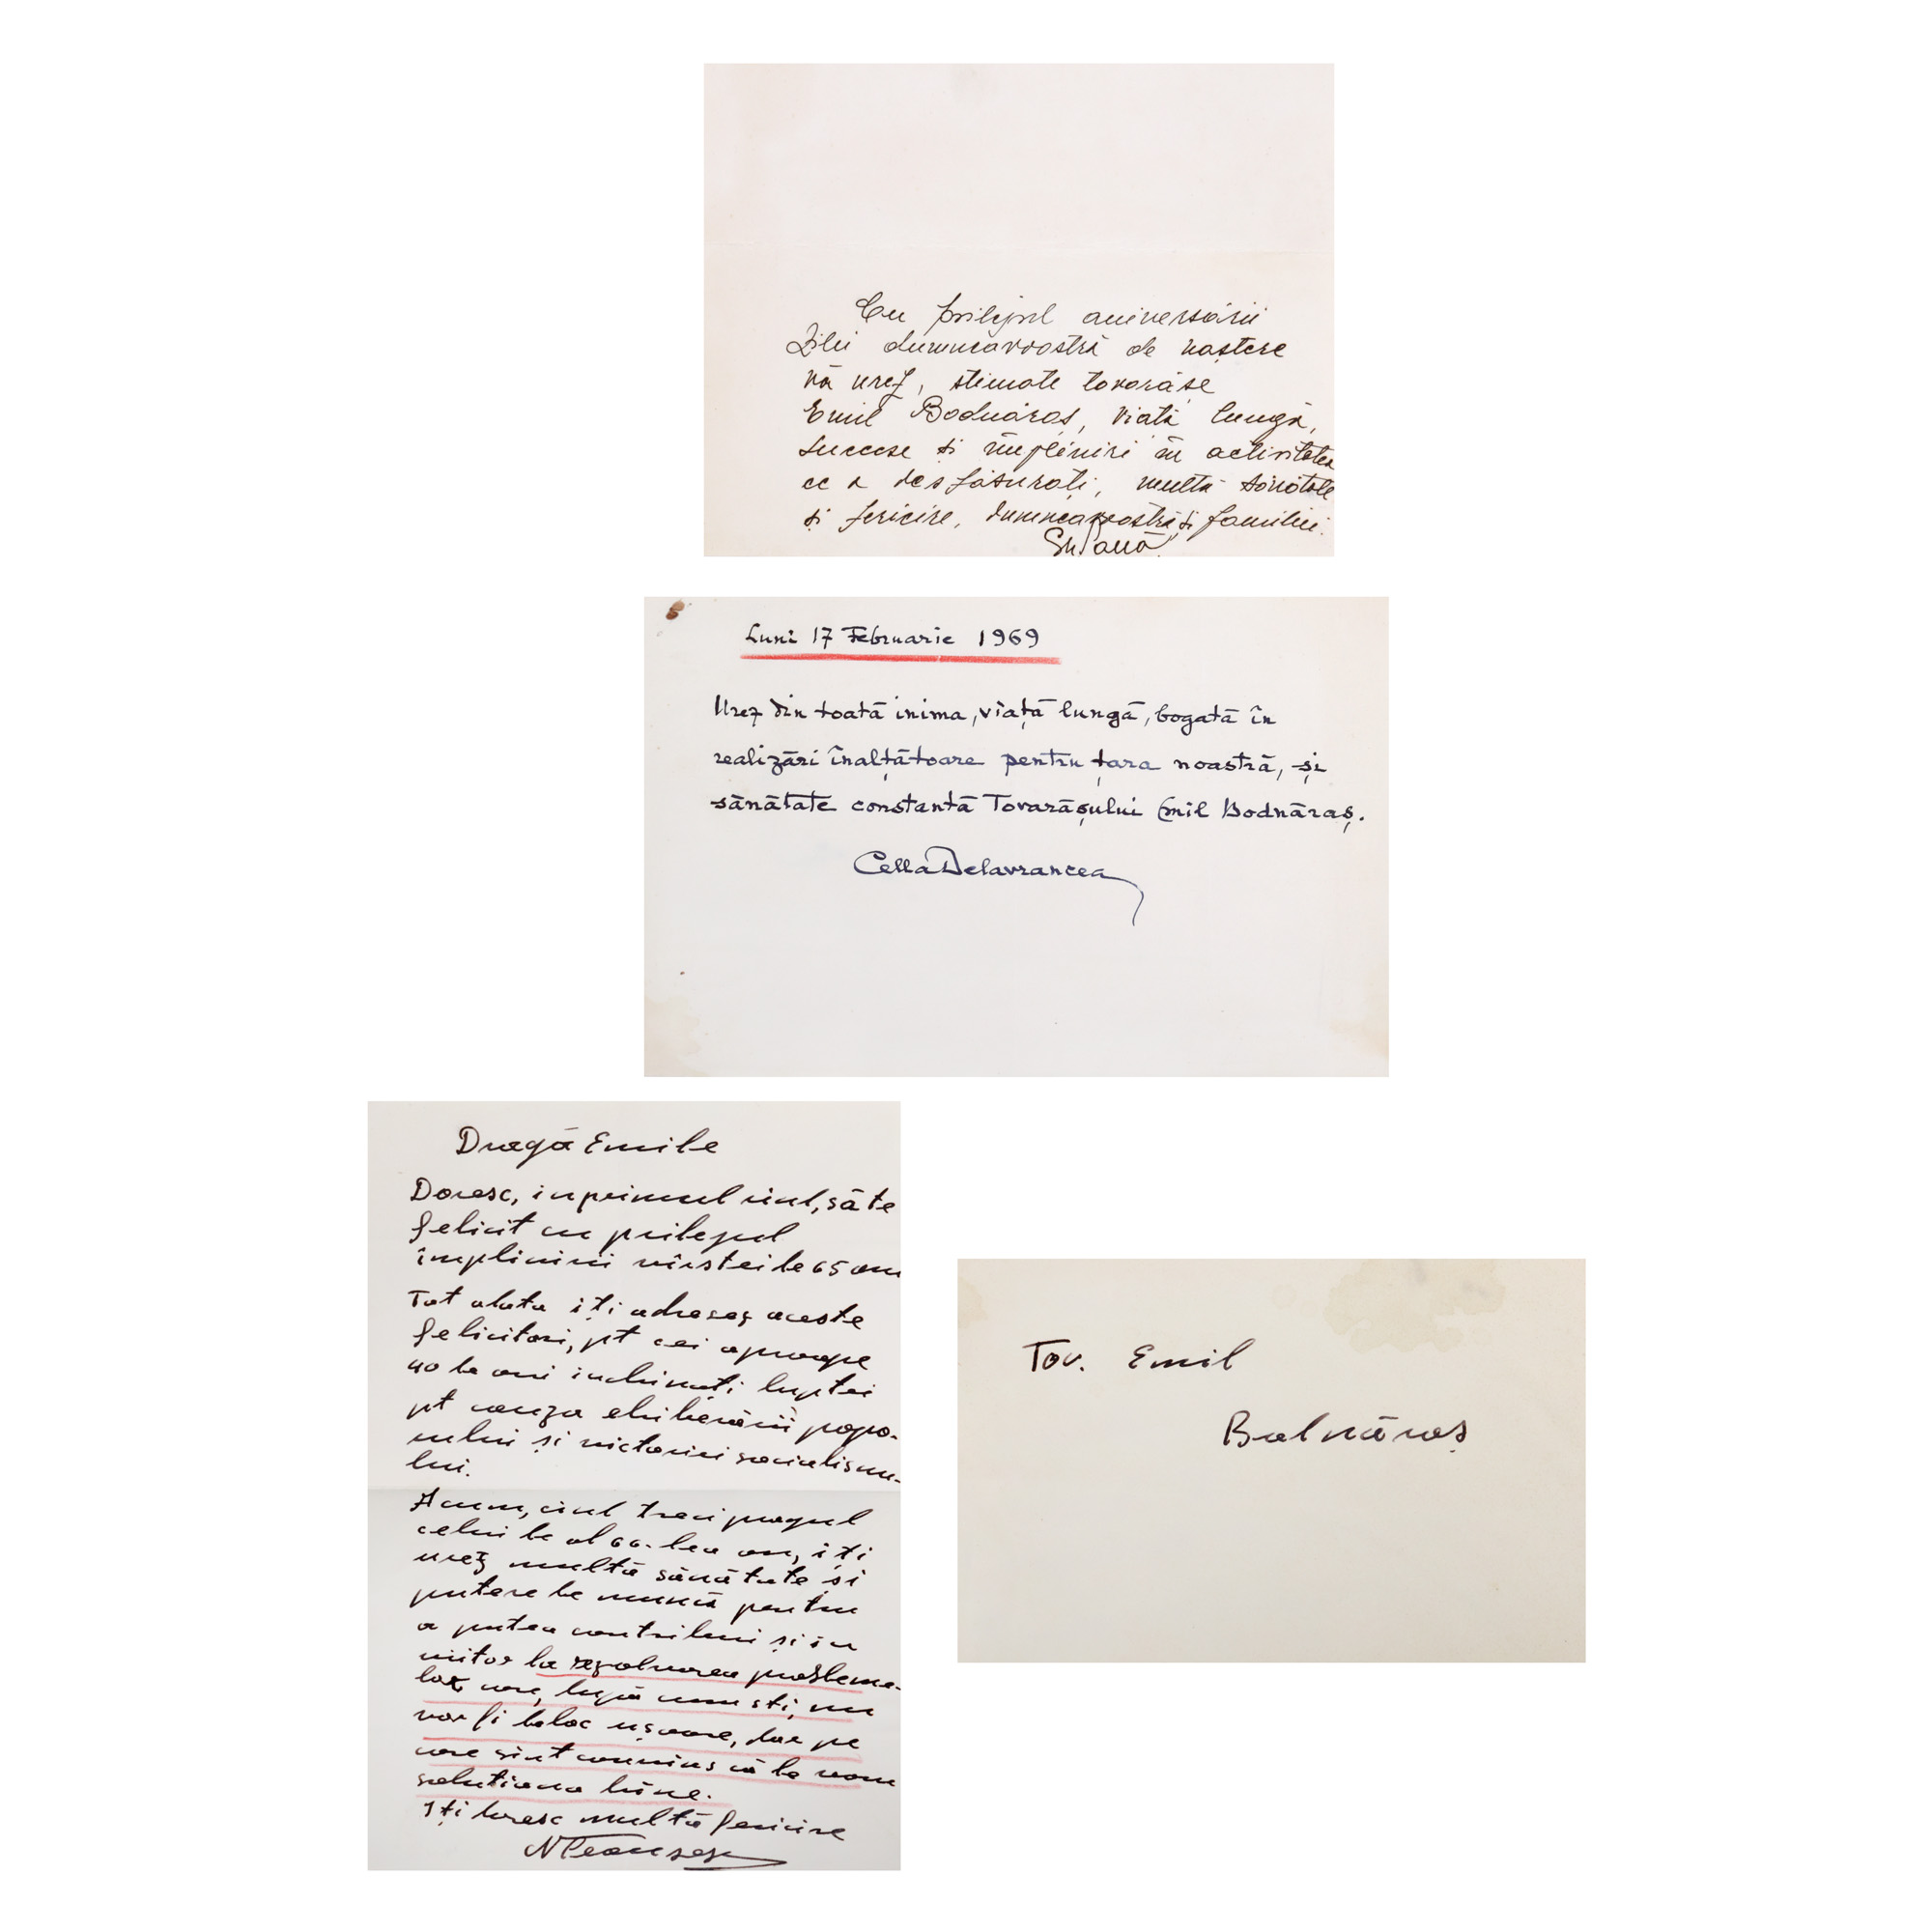 Cu prilejul aniversării
Zilei dumneavoastră de naștere
vă urez, stimate tovarășe
Emil Bodnăraș, viață lungă,
succese și împliniri în activitatea
ce o desfășurați, multă sănătate
și fericire, dumneavoastră și familiei.
Luni 17 Februarie 1969
Urez din toată inima, viață lungă, bogată în
realizări înalțătoare pentru țara noastră, și
sănătate constantă Tovarășului Emil Bodnăraș.
Cella Delavrancea
Dragă Emile
Doresc, in primul rînd, să te
felicit cu prilejul
împlinirii vîrstei de 65 ani
Tot odata iți adresez aceste
felicitari, pt cei aproape
40 de ani inchinați luptei
pt cauza eliberării popo-
rului și victoriei socialismu-
lui.
Acum, cind treci pragul
celui de al 66-lea an, iți
urez multă sănătate și
putere de muncă pentru
a putea contribui și in
viitor la rezolvarea probleme-
lor care, după cum sti, nu
vor fi deloc ușoare, dar pe
care sint convins că le vom
soluționa bine.
Iți doresc multă fericire
NCeausescu
Tov. Emil
Bodnăraș